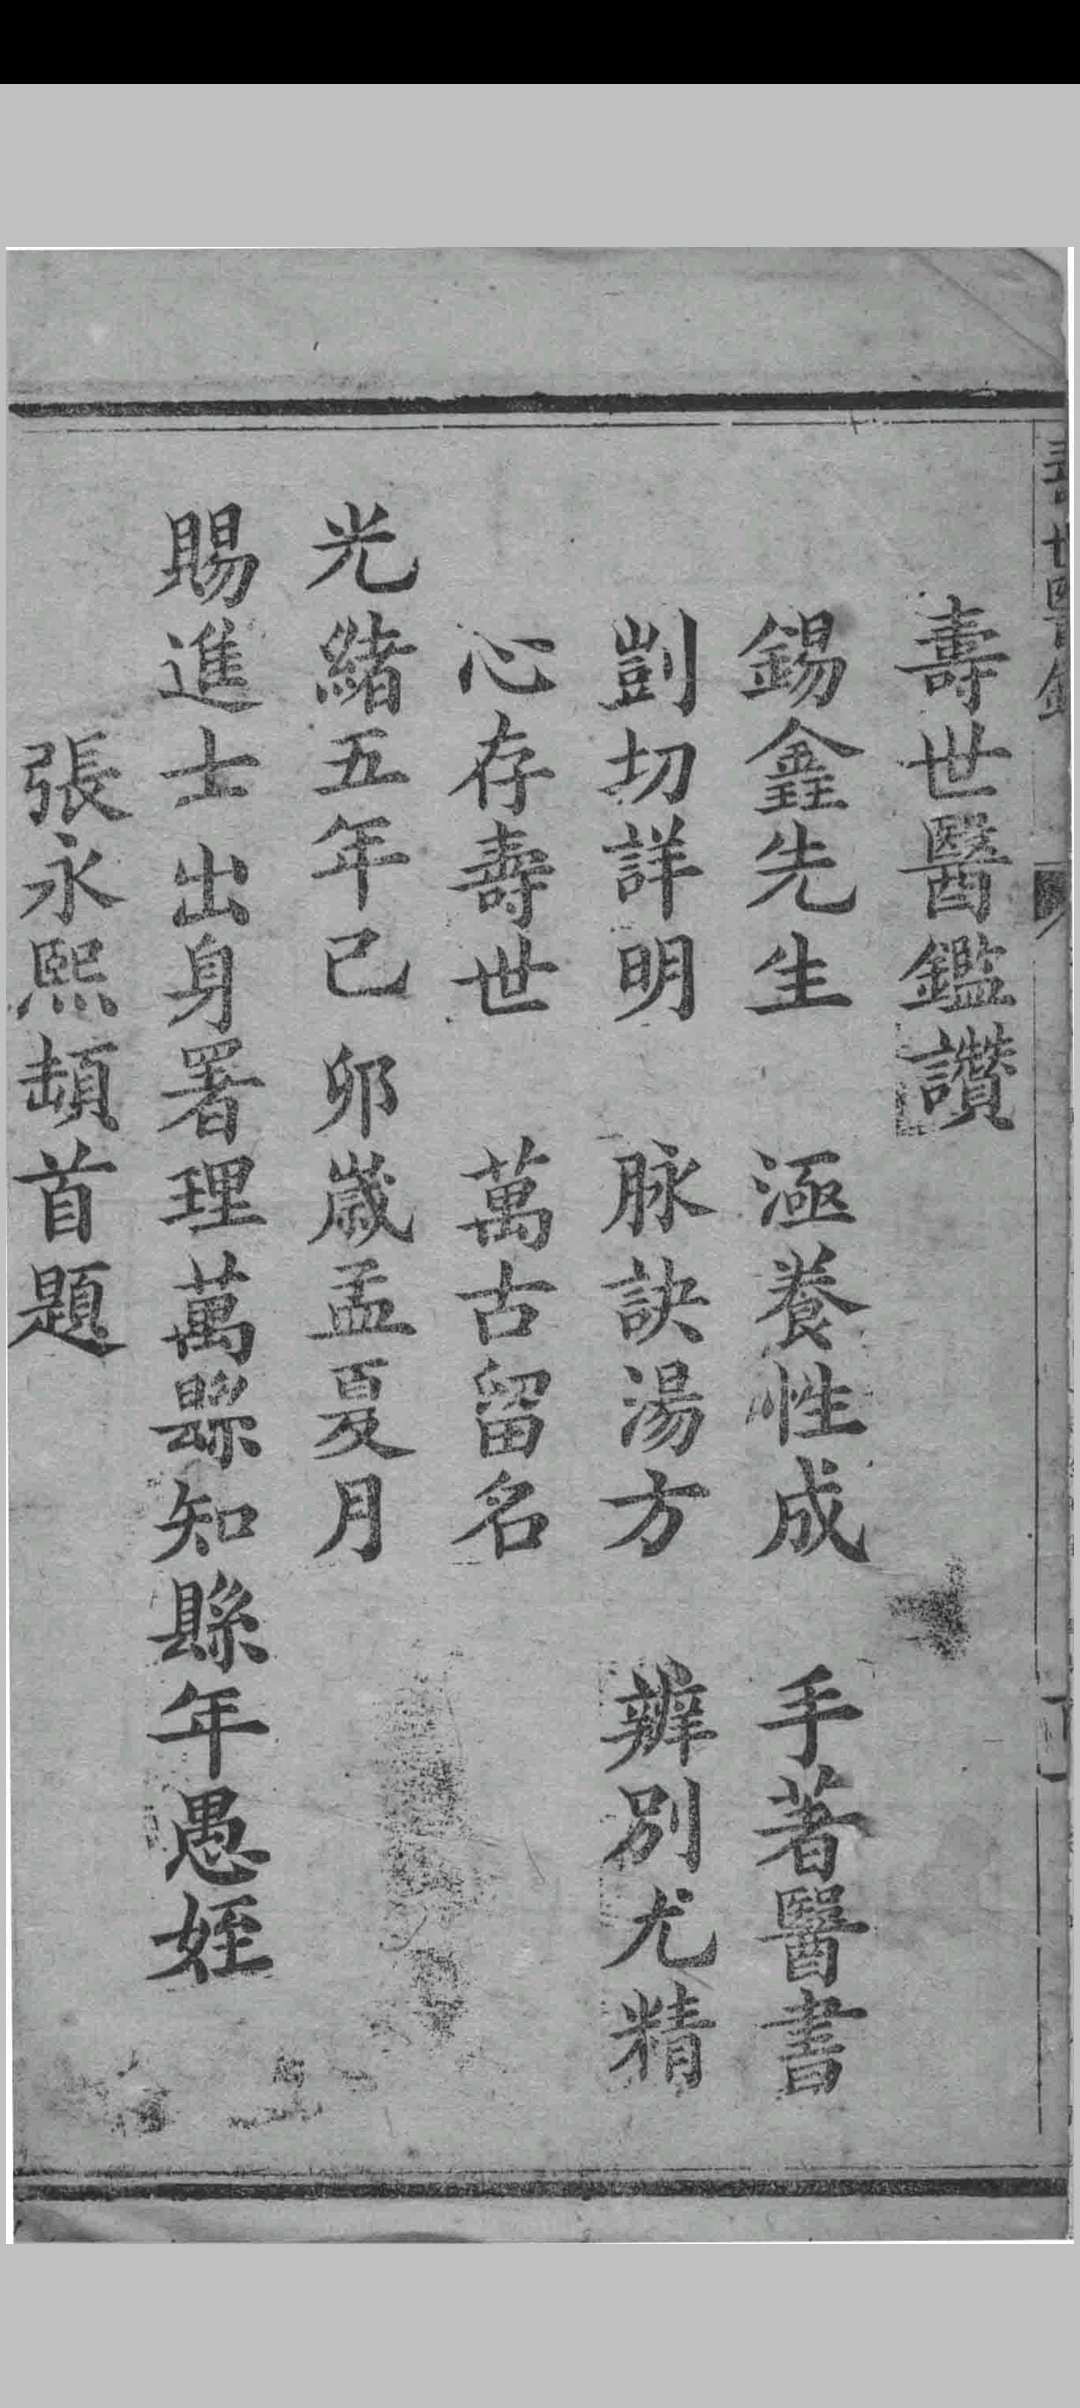 壽世醫鑑讚
錫鑫先生　涵養性成　手著醫書
剴切詳明　脉訣湯方　辨別尤精
心存壽世　萬古留名
光緒五年己卯歲孟夏月
賜進士出身署理萬縣知縣年愚姪
張永熙頓首題